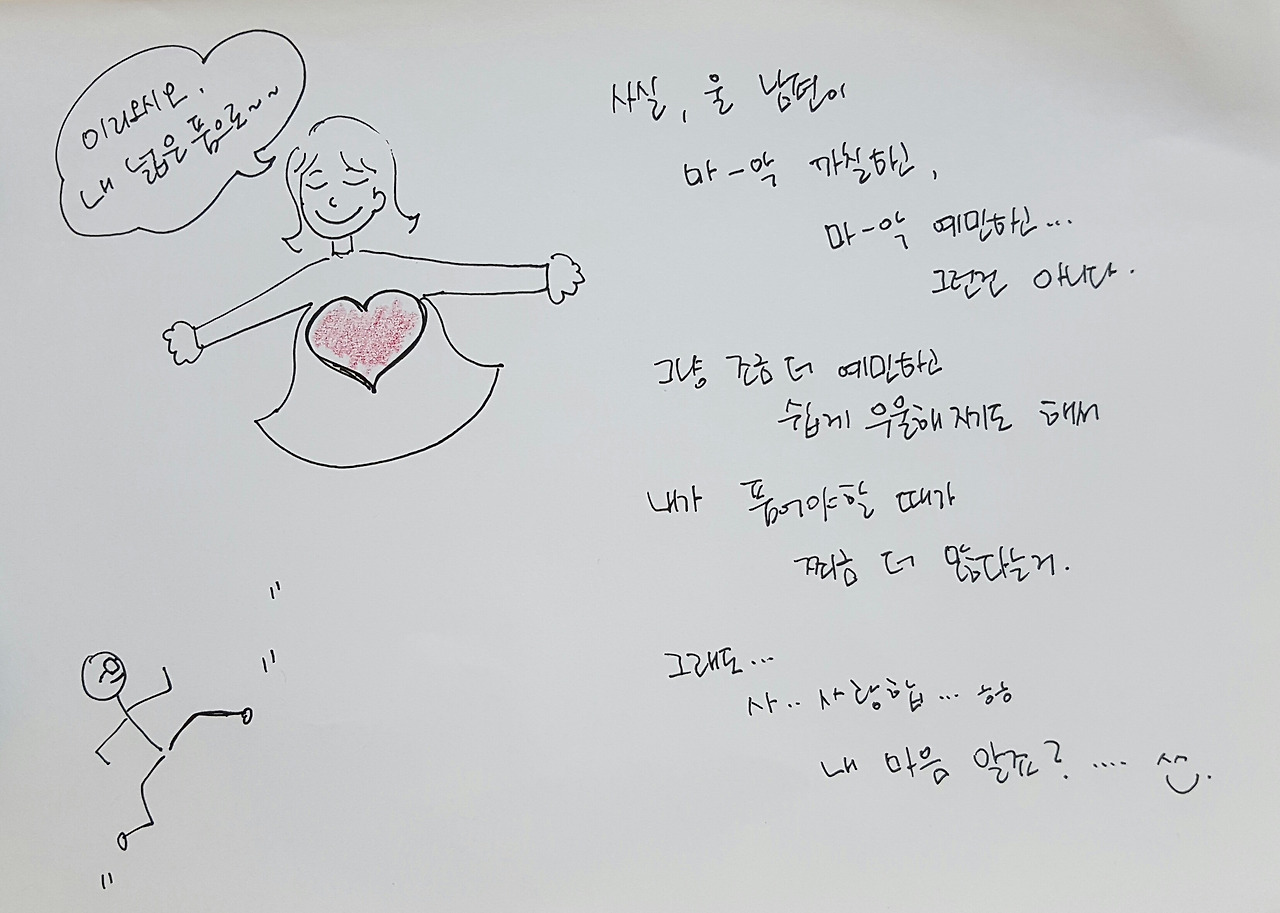 이리오시오,
내 넓은 품으로~~
사실, 울 남편이
마-악 까칠하고,
마-악 예민하고...
그런건 아니다.
그냥 조금 더 예민하고
쉽게 우울해지기도 해서
내가 품어야할 때가
쪼금 더 많다는거.
그래도...
사.. 사랑합... ㅎㅎ
내 마음 알죠? ....